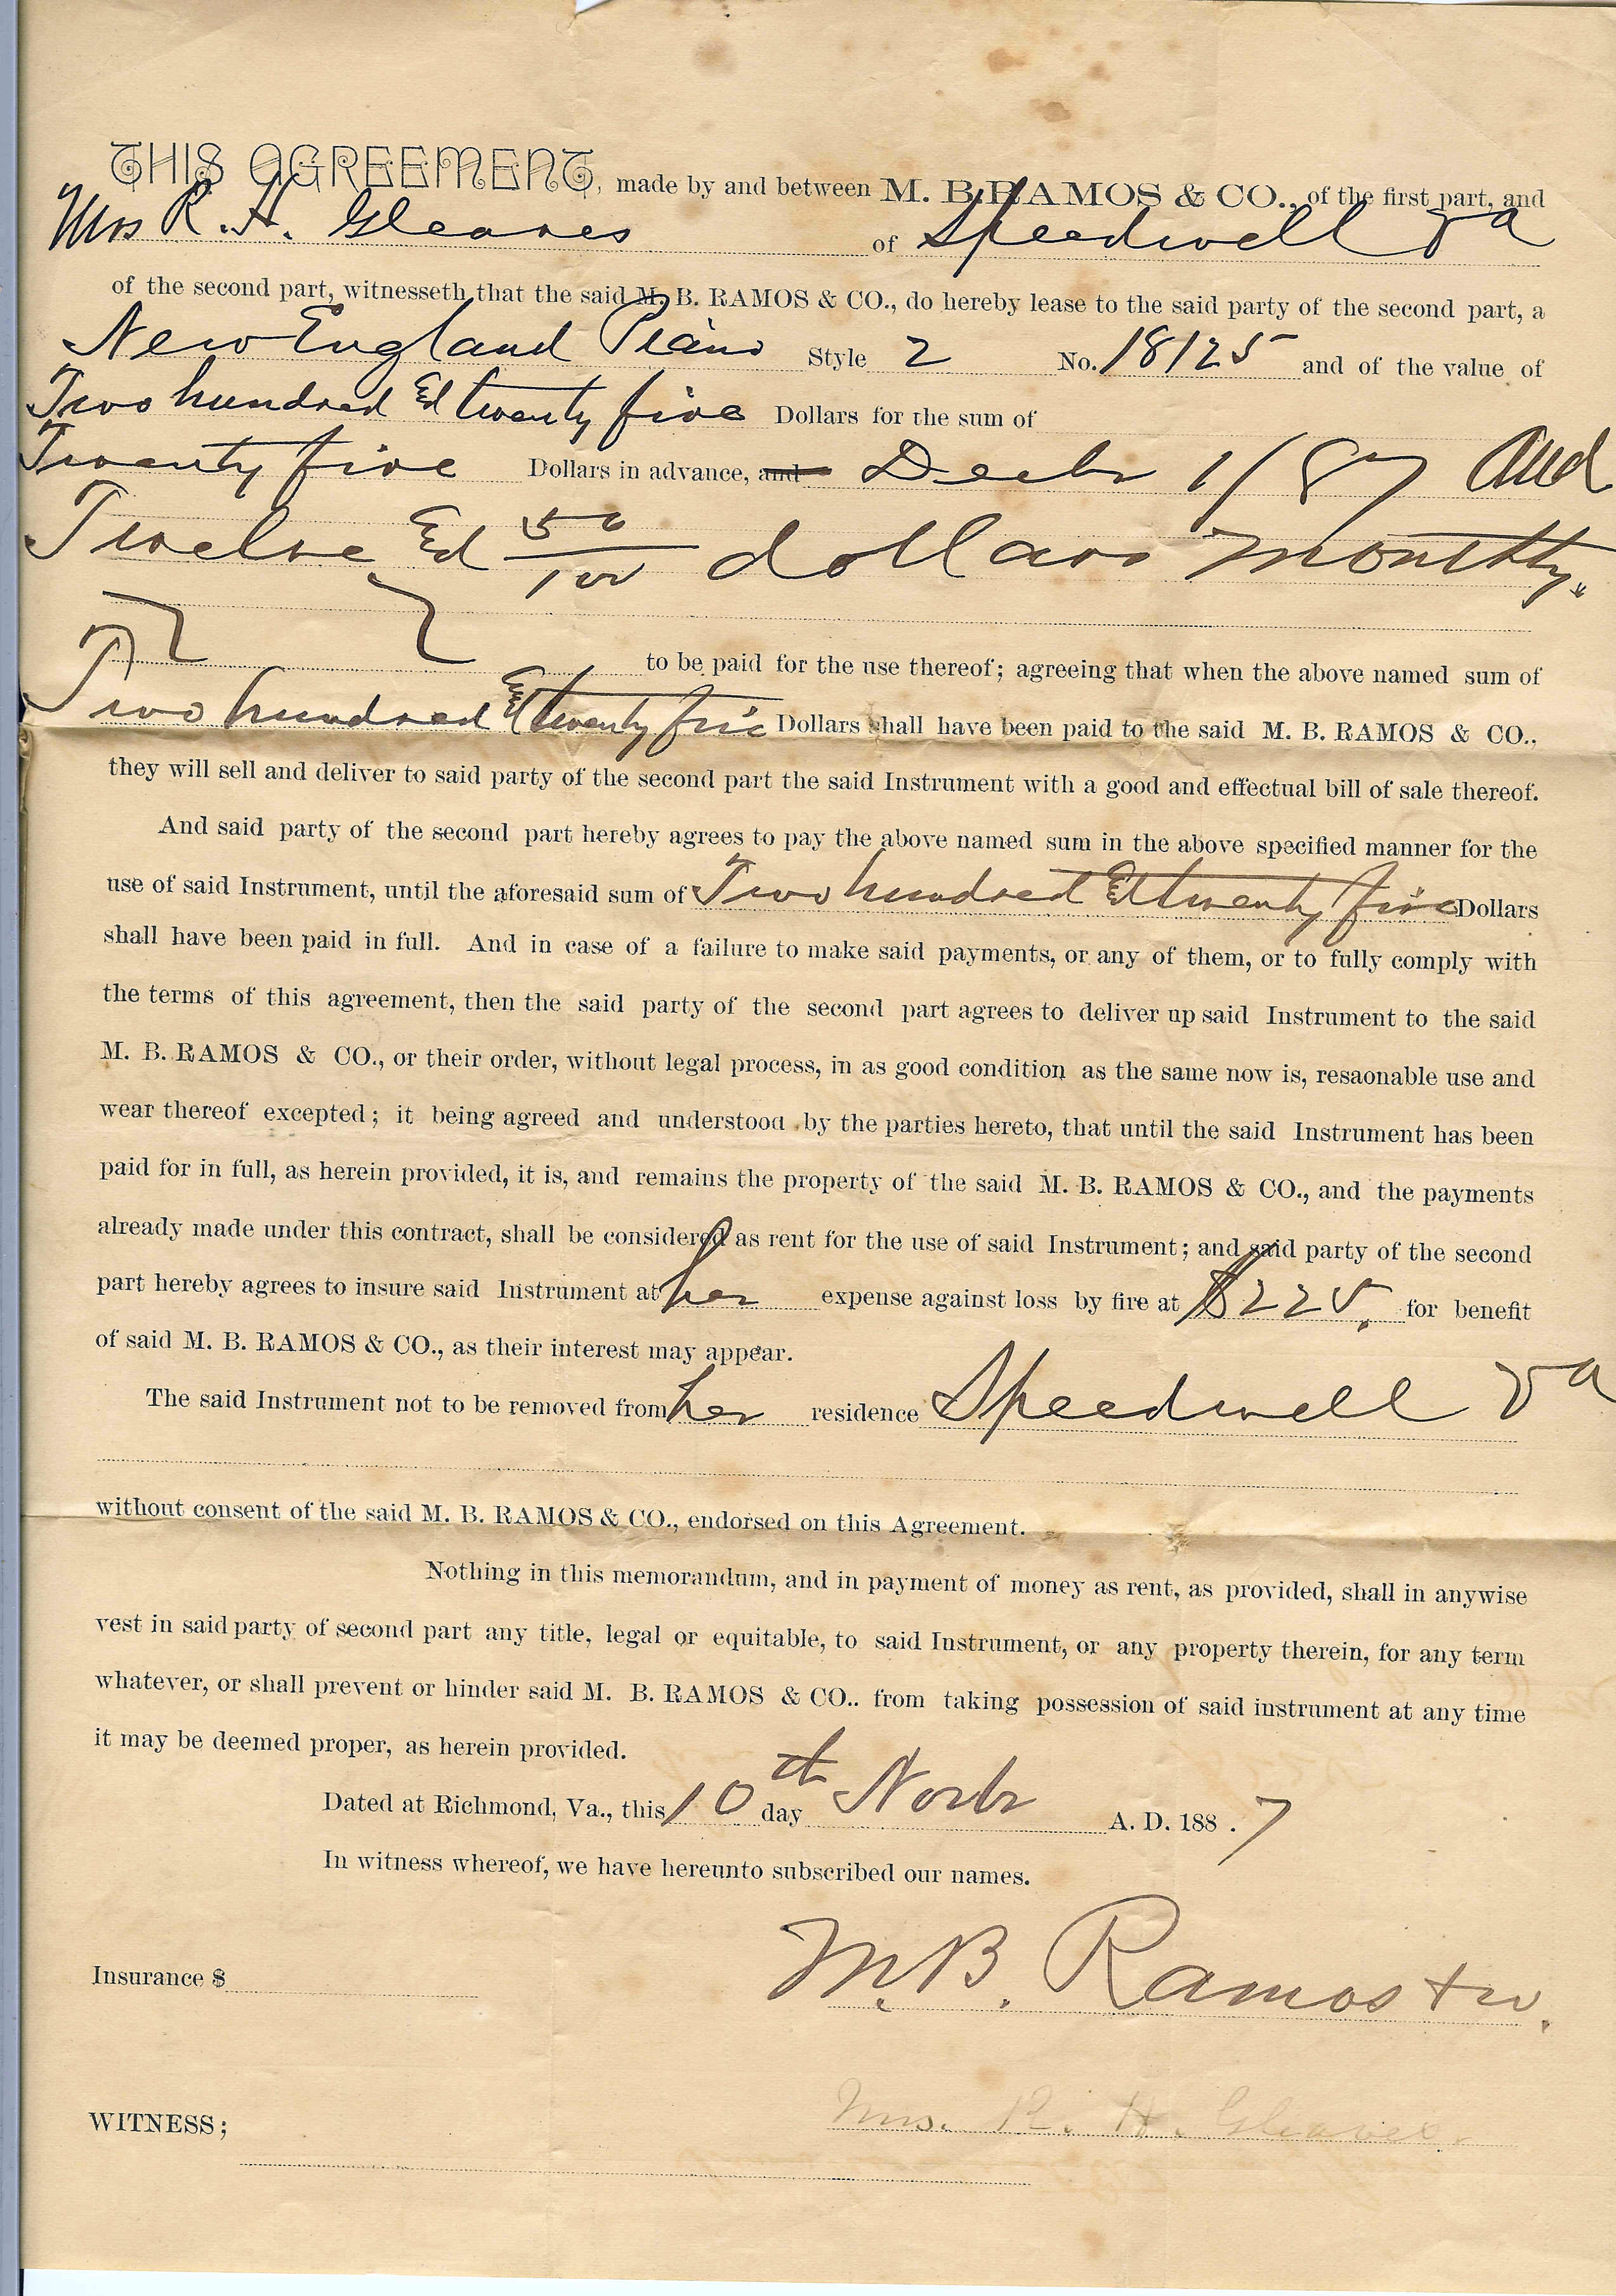 THIS AGREEMENT, made by and between M. B. RAMOS & CO., of the first part, and
Mrs R. H. Gleaves of Speedwell Va
of the second part, witnesseth that the said M. B. RAMOS & CO., do hereby lease to the said party of the second part, a
New England Piano Style 2 No. 18125 and of the value of
Two hundred & twenty five Dollars for the sum of
Twenty five Dollars in advance, and Decbr 1/87 and
Twelve & 50/100 dollars monthly.
to be paid for the use thereof; agreeing that when the above named sum of
Two hundred & twenty five Dollars shall have been paid to the said M. B. RAMOS & CO.,
they will sell and deliver to said party of the second part the said Instrument with a good and effectual bill of sale thereof.
And said party of the second part hereby agrees to pay the above named sum in the above specified manner for the
use of said Instrument, until the aforesaid sum of Two hundred & twenty five Dollars
shall have been paid in full. And in case of a failure to make said payments, or any of them, or to fully comply with
the terms of this agreement, then the said party of the second part agrees to deliver up said Instrument to the said
M. B. RAMOS & CO., or their order, without legal process, in as good condition as the same now is, resaonable use and
wear thereof excepted; it being agreed and understood by the parties hereto, that until the said Instrument has been
paid for in full, as herein provided, it is, and remains the property of the said M. B. RAMOS & CO., and the payments
already made under this contract, shall be considered as rent for the use of said Instrument; and said party of the second
part hereby agrees to insure said Instrument at her expense against loss by fire at $225. for benefit
of said M. B. RAMOS & CO., as their interest may appear.
The said Instrument not to be removed from her residence Speedwell Va
without consent of the said M. B. RAMOS & CO., endorsed on this Agreement.
Nothing in this memorandum, and in payment of money as rent, as provided, shall in anywise
vest in said party of second part any title, legal or equitable, to said Instrument, or any property therein, for any term
whatever, or shall prevent or hinder said M. B. RAMOS & CO.. from taking possession of said instrument at any time
it may be deemed proper, as herein provided.
Dated at Richmond, Va., this 10th day Novbr A. D. 188 . 7
In witness whereof, we have hereunto subscribed our names.
M. B. Ramos + co.
Insurance $
Mrs. R. H. Gleaves.
WITNESS;